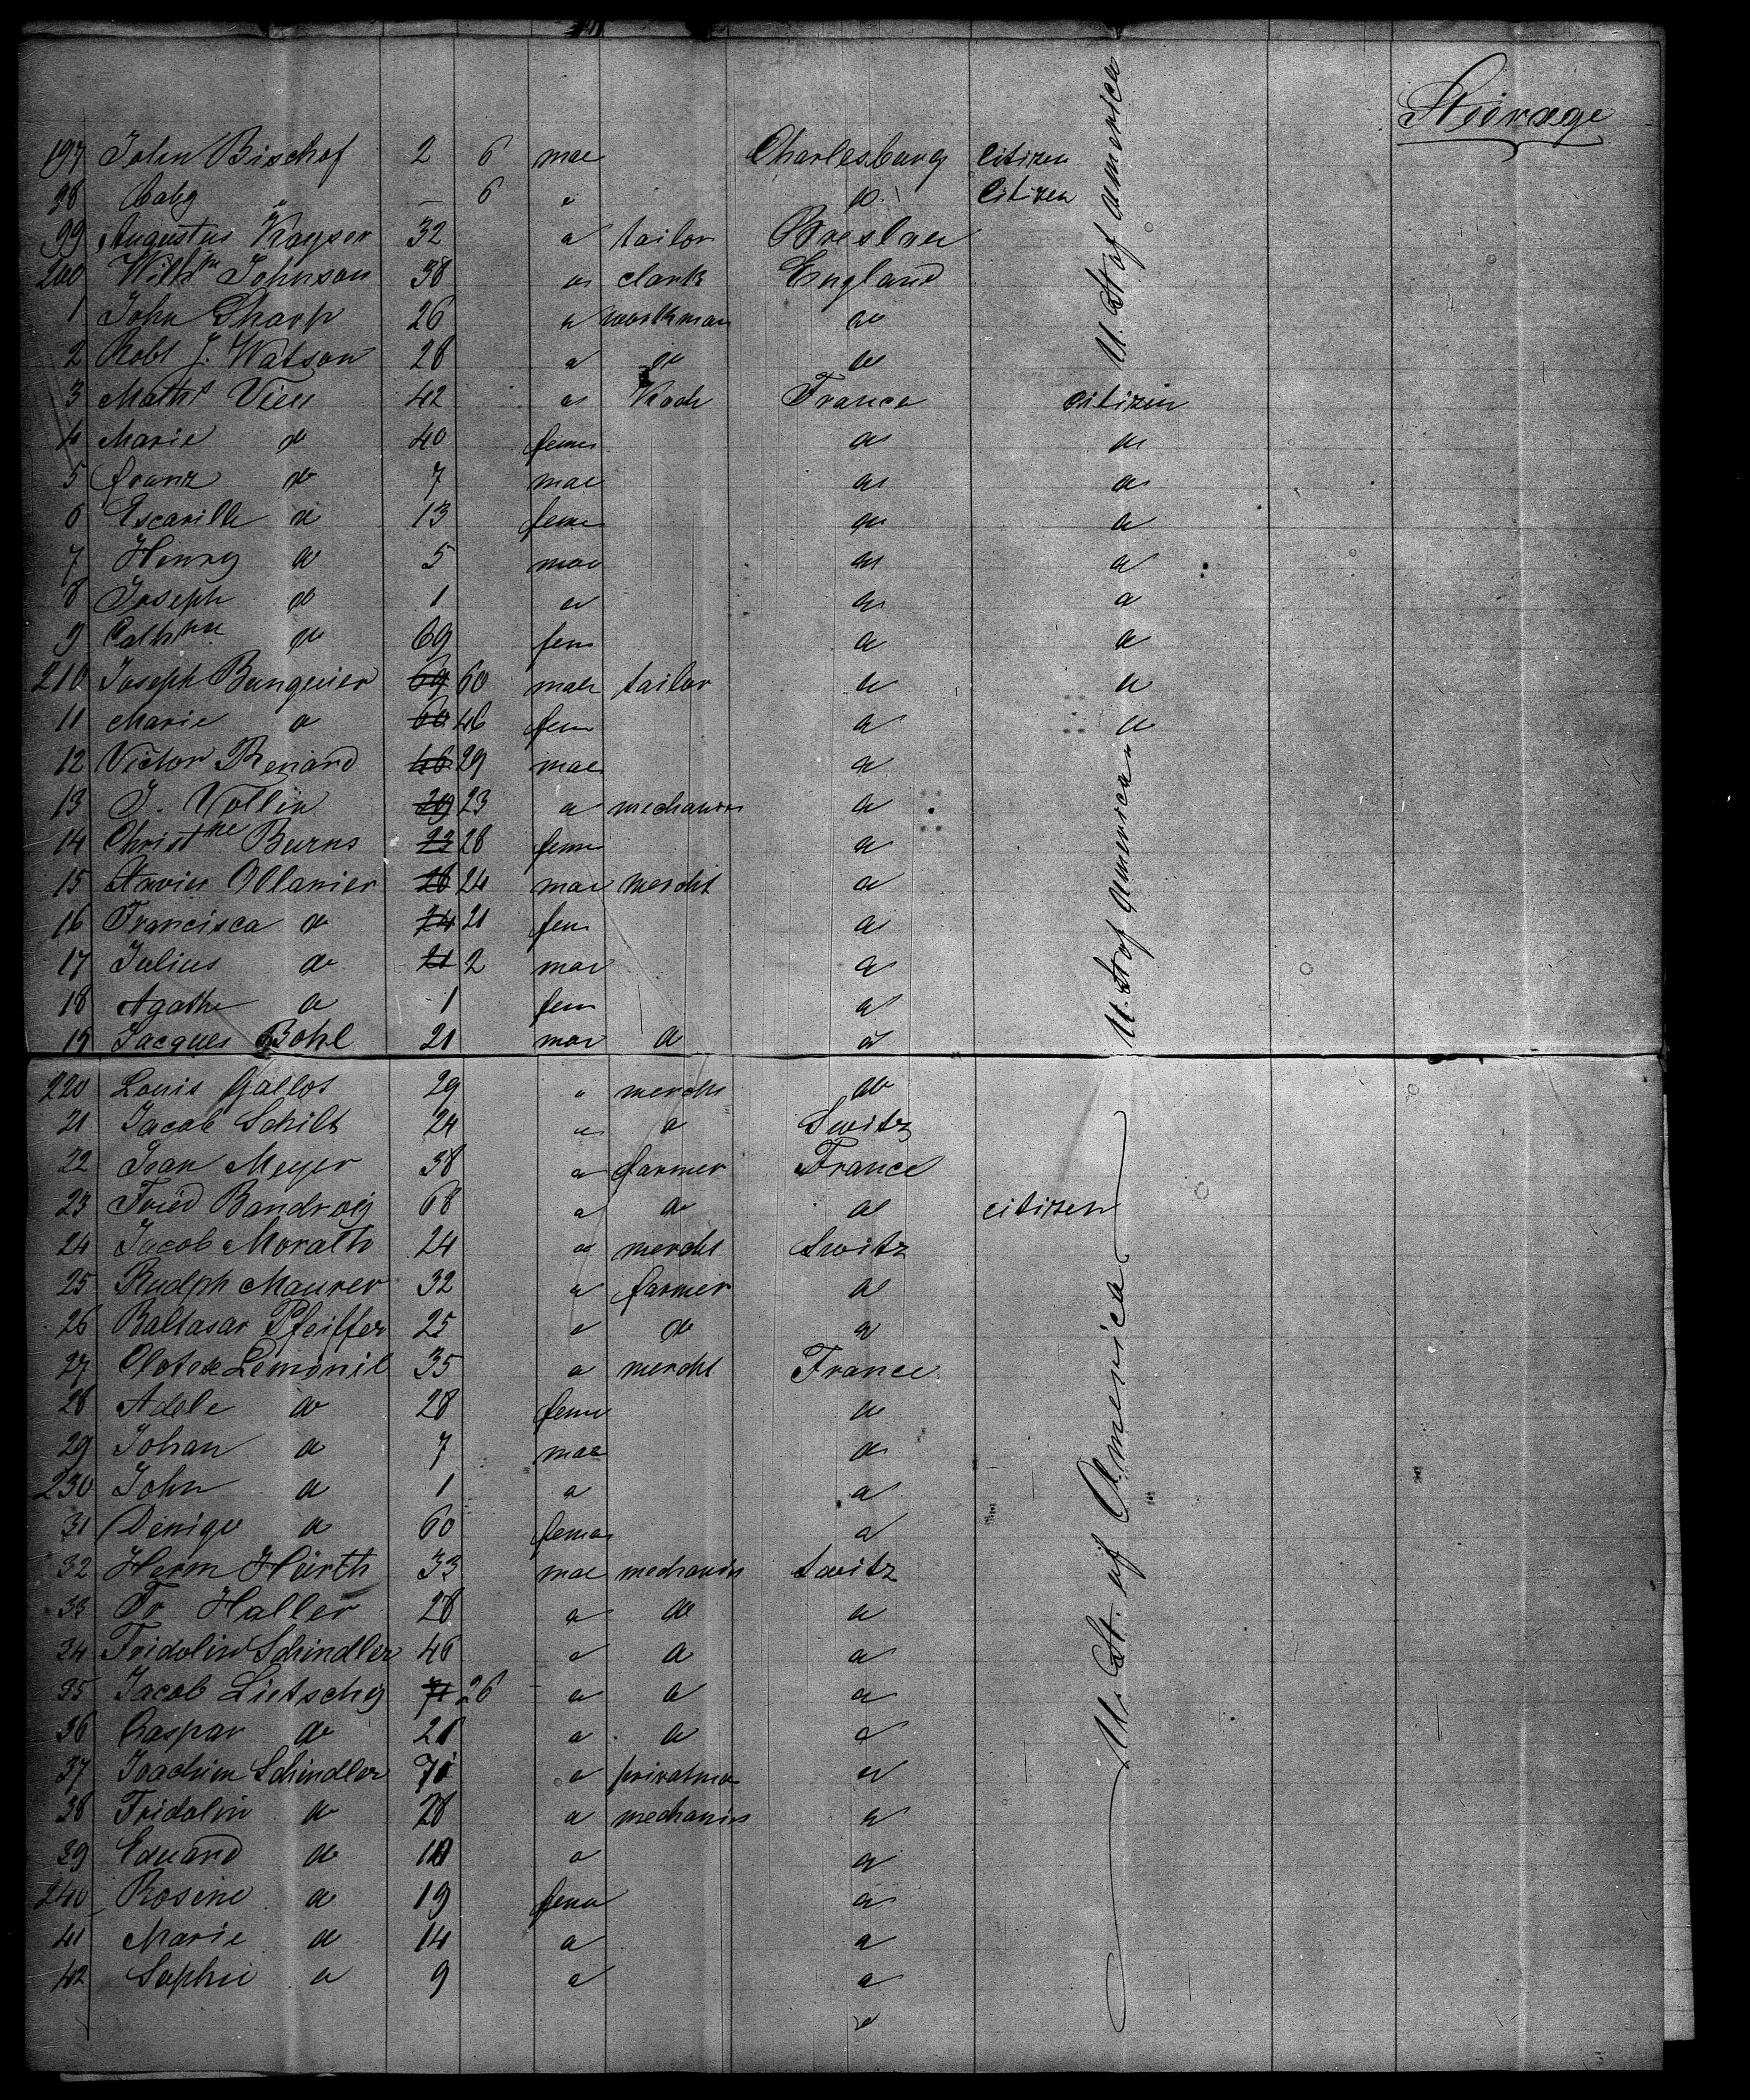 Steirage
197 John Bischof 2 6 mae Charlesburg citizen
98 Baby " — 6 " do. Citizen
99 Augustus Kayser 32 a tailor Breslau
200 Wilhm Johnson 38 a clark England
1 John Sharp 26 a workman do
2 Robt J. Watson 28 a do do
U. St of America
3 Maths Vieu 42 a Koch France citizen
4 Marie do 40 feme a a
5 franz do 7 mae a a
6 a 13 feme a a
7 Henry do 5 mae a a
8 Joseph do 1 a a a
9 Cathne do 69 fem a a
210 Joseph Bunguier 69 60 mae tailor a a
11 Marie a 60 46 fem a a
12 Victor Renard 46 29 mae a
13 J. Vollin 29 23 a mechanics a
14 Christne Burns 23 28 feme a
15 28 24 mae mercht a
16 Francisca do 24 21 fem a
17 Julius do 21 2 mae a
18 Agathe a 1 fem a
19 Jacques Bohl 21 mae a a
U. St of American
220 Louis Gallot 29 " mercht do
21 Jacob Schilt 24 " a Switz
22 Jean Meyer 38 a farmer France
23 Fried 68 a a a citizen
24 Jacob Morath 24 a mercht Switz
25 Rudph Maurer 32 a farmer a
26 Baltasar Pfeiffer 25 a do a
27 Lemonil 35 a mercht France
28 Adele do 28 feme a
29 Johan a 7 mae a
230 John a 1 a a
31 Denige a 60 femae a
32 Herm Hürth 33 mae mechanics Switz
33 Fr Haller 28 a do a
34 Fridolin Schindler 46 a a a
35 Jacob Lietschg 71 26 a a a
36 Caspar do 21 a a a
37 Joachim Schindler 71 a privatman a
38 Fridolin a 28 a mechanics a
39 Eduard do a a
240 Rosine a 19 feme a
41 Marie a 14 a a
42 Sophie a 9 a a
a
U. St. of America